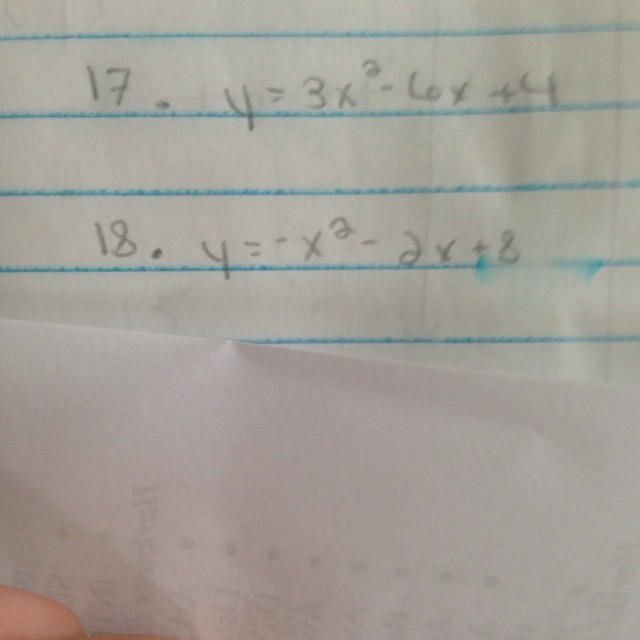 17. y = 3x² - 6x + 4
18. y = -x² - 2x + 8